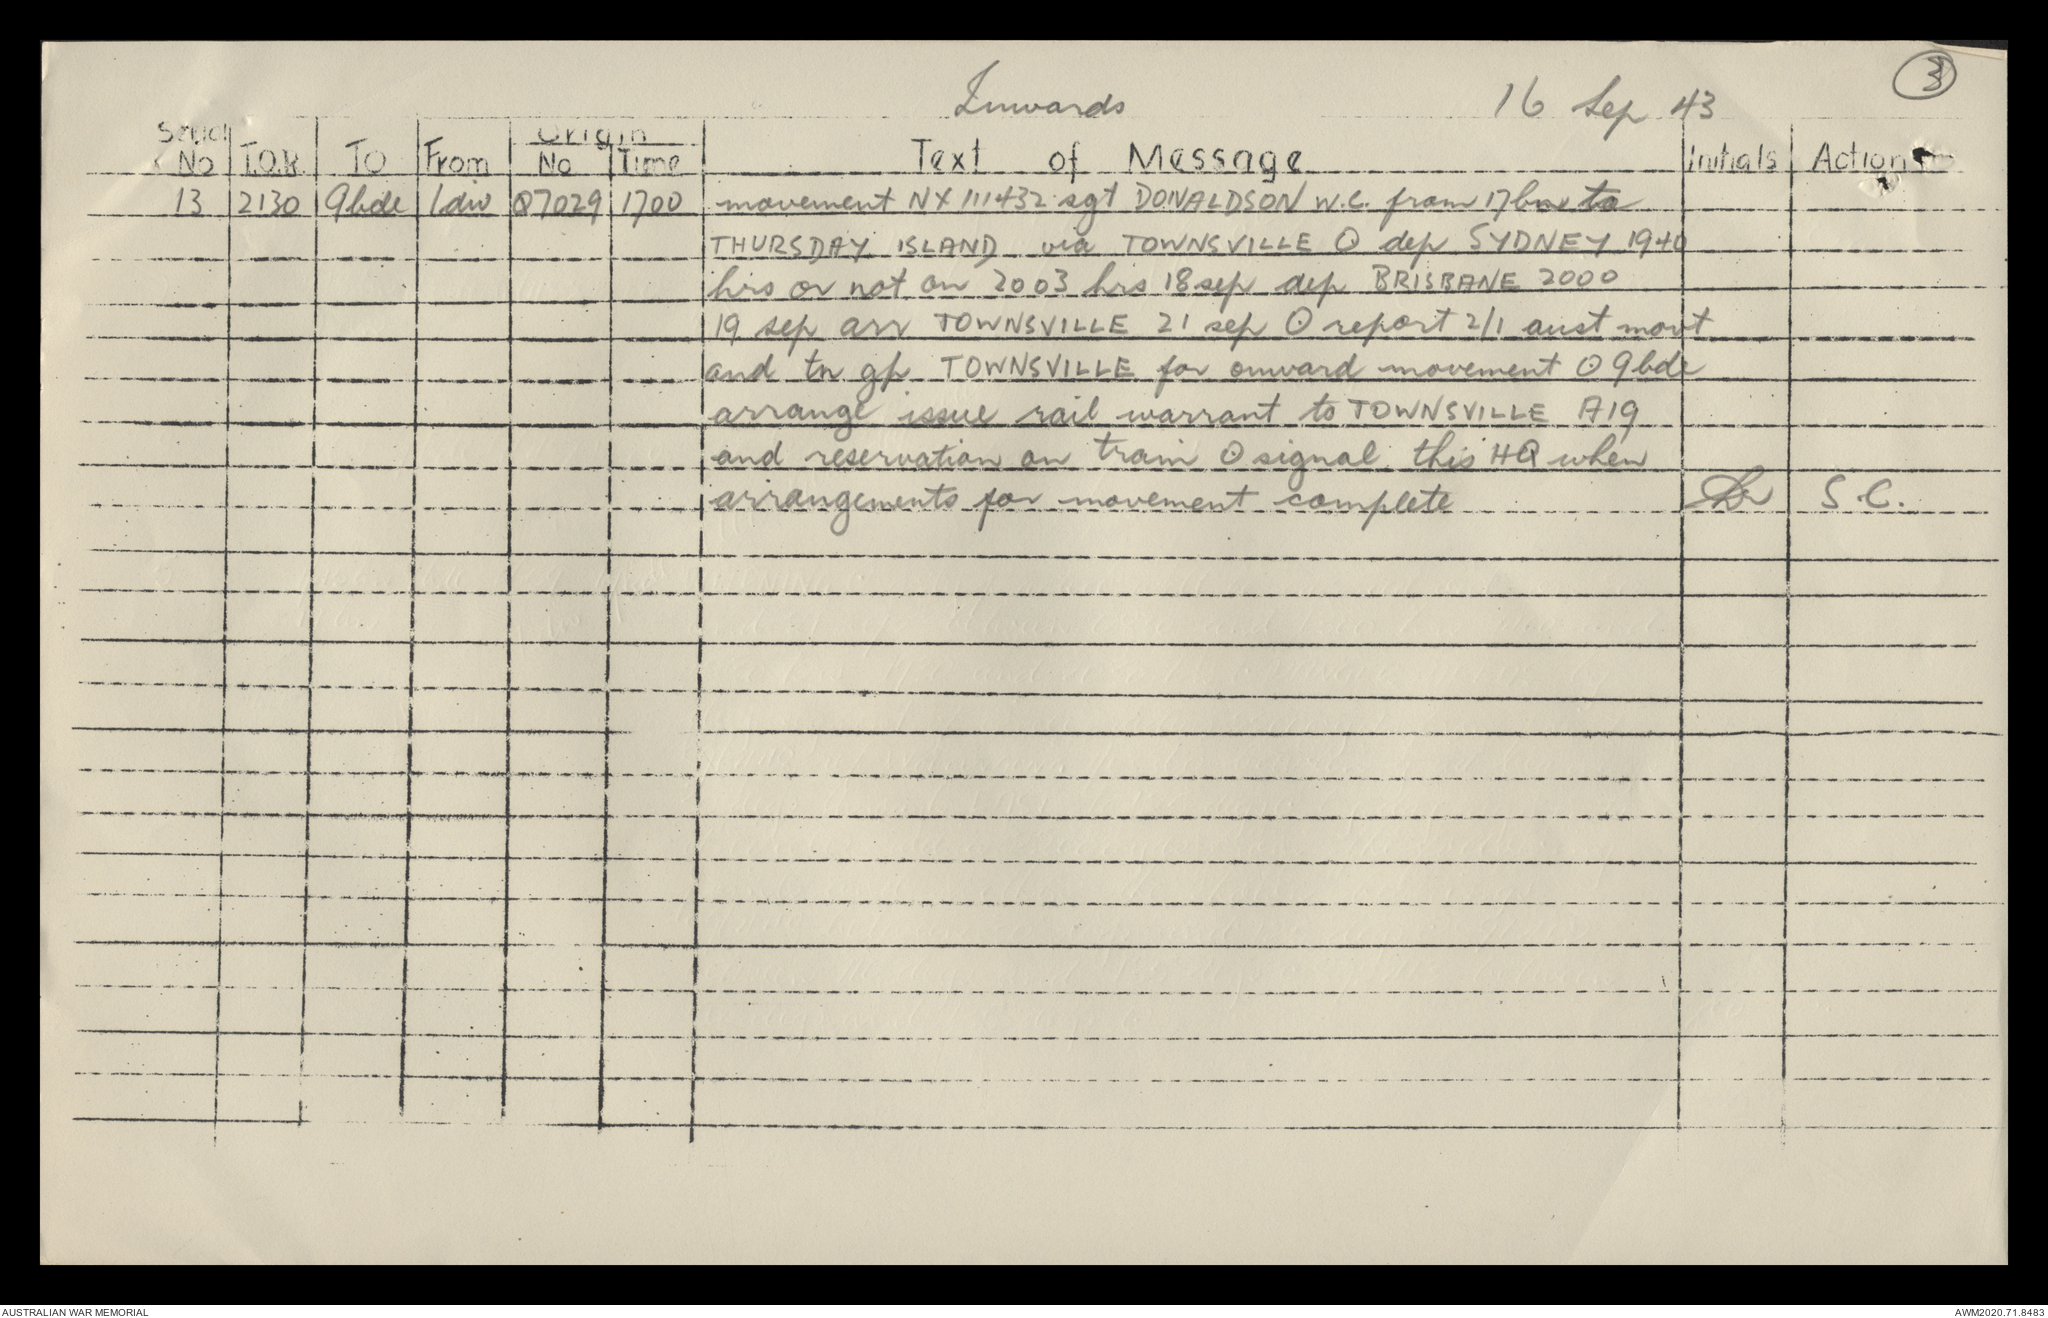 3
Inwards 16 Sep 43
Serial Origin
No T.O.R. TO From No Time Text of Message Initials Action
13 2130 9bde 1div Q7029 1700 movement NX 111432 sgt DONALDSON W.C. from 17bn to
THURSDAY ISLAND via TOWNSVILLE ⊙ dep SYDNEY 1940
hrs or not on 2003 hrs 18 sep dep BRISBANE 2000
19 sep arr TOWNSVILLE 21 sep ⊙ report 2/1 aust movt
and tn gp TOWNSVILLE for onward movement ⊙ 9bde
arrange issue rail warrant to TOWNSVILLE A19
and reservation on train ⊙ signal this HQ when
arrangements for movement complete S.C.
AUSTRALIAN WAR MEMORIAL AWM2020.71.8483